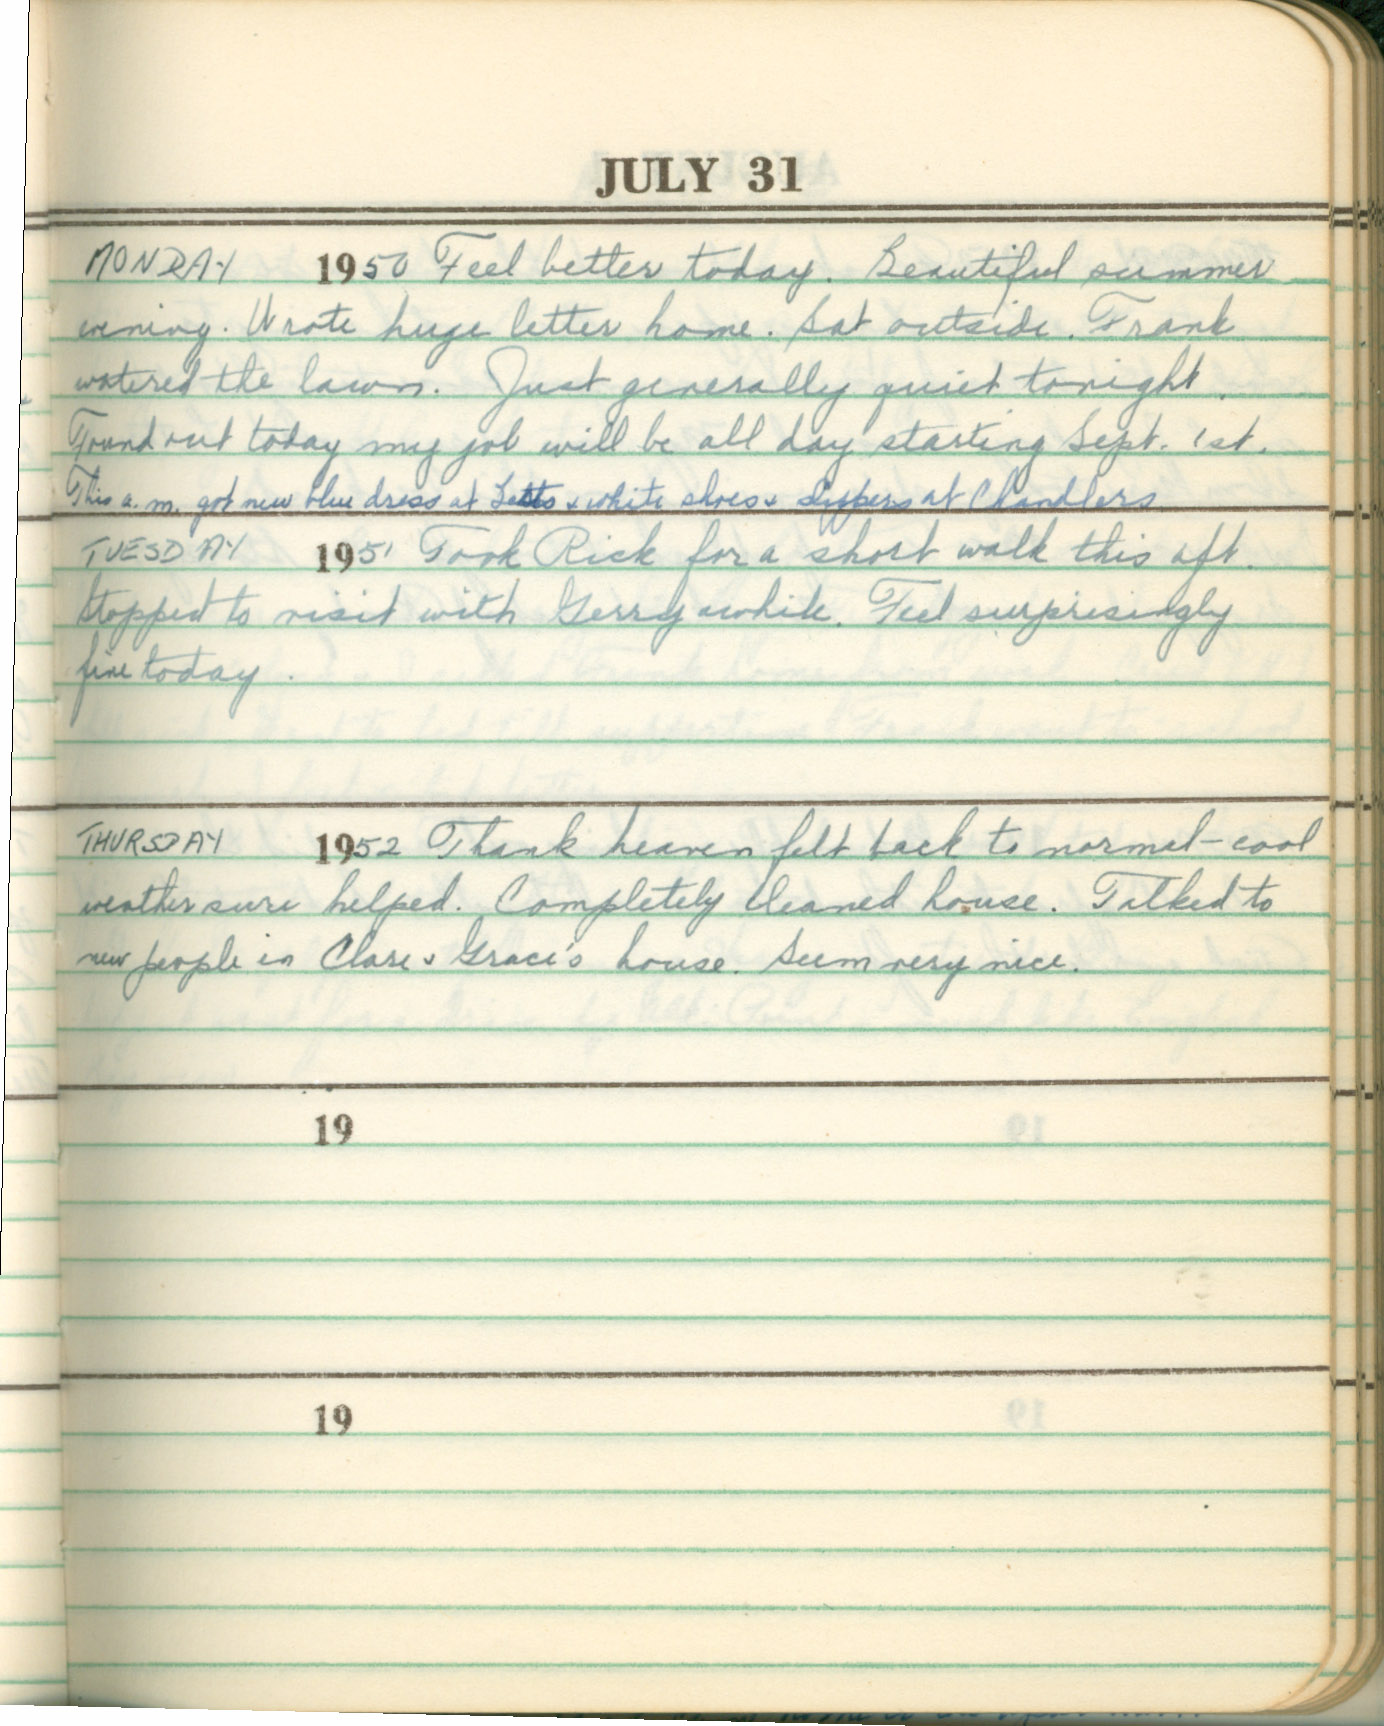 JULY 31
MONDAY 1950 Feel better today. Beautiful summer
evening. Wrote huge letter home. Sat outside. Frank
watered the lawn. Just generally quiet tonight.
Found out today my job will be all day starting Sept. 1st.
This a.m. got new blue dress at & white shoes & slippers at Chandlers
TUESDAY 1951 Took Rick for a short walk this aft.
Stopped to visit with Gerry awhile. Feel surprisingly
fine today.
THURSDAY 1952 Thank heaven felt back to normal - cool
weather sure helped. Completely cleaned house. Talked to
new people in Clare & Grace's house. Seem very nice.
19
19